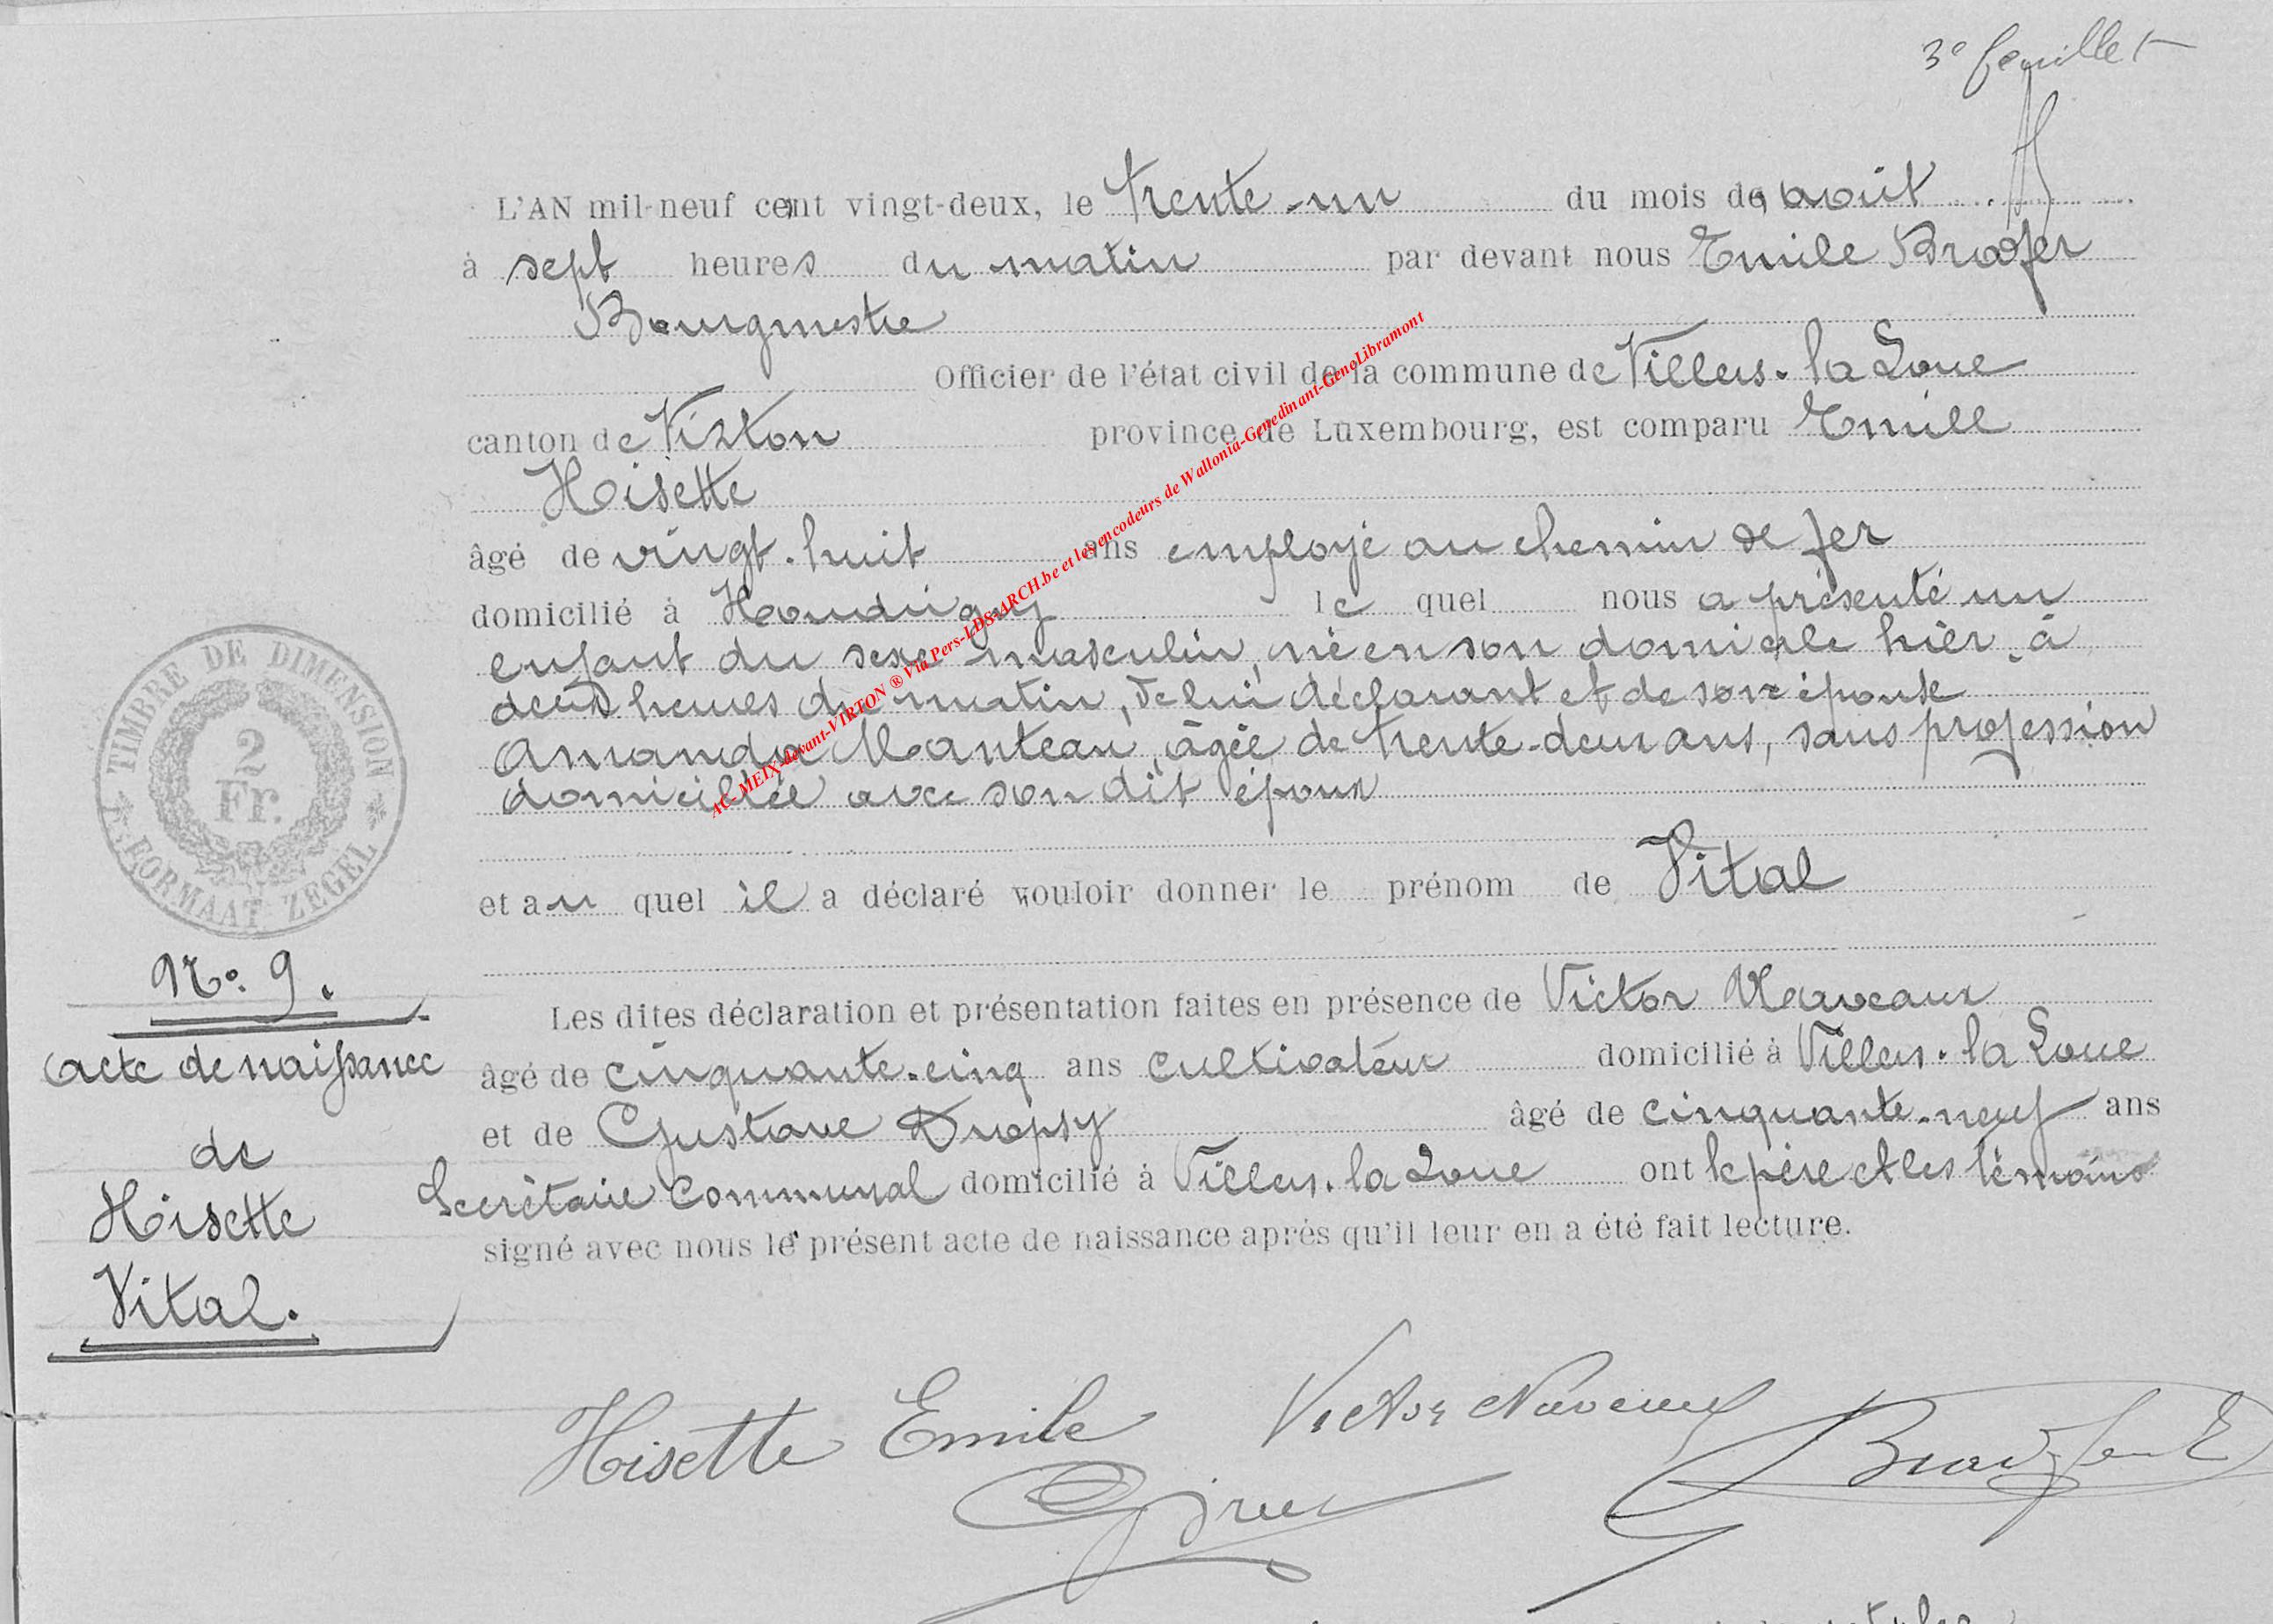 3e feuillet
L'AN mil-neuf cent vingt-deux, le trente-un du mois de, août
à sept heures du matin par devant nous Emile Bradfer
Bourgmestre
Officier de l'état civil de la commune de Villers-la Loue
canton de Virton province de Luxembourg, est comparu Emile
Hisette
âgé de vingt-huit ans employé au chemin de fer
domicilié à Houdrigny le quel nous a présenté un
enfant du sexe masculin, né en son domicile hier, à
deux heures du matin, de lui déclarant et de son épouse
Amanda Manteau, âgée de trente-deux ans, sans profession
domiciliée avec son dit époux
et au quel il a déclaré vouloir donner le prénom de Vital
Les dites déclaration et présentation faites en présence de Victor Naveaux
âgé de cinquante-cinq ans cultivateur domicilié à Villers-la Loue
et de Gustave Dropsy âgé de cinquante-neuf ans
Secrétaire communal domicilié à Villers-la Loue ont le père et les témoins
signé avec nous le présent acte de naissance après qu'il leur en a été fait lecture.
TIMBRE DE DIMENSION
2
Fr.
FORMAAT ZEGEL
No. 9.
acte de naissance
de
Hisette
Vital.
Hisette Emile Victor Naveaux
AC-MEIX-devant-VIRTON ® Via Pers-LDS-ARCH.be et les encodeurs de Wallonia-Genedinant-GenoLibramont